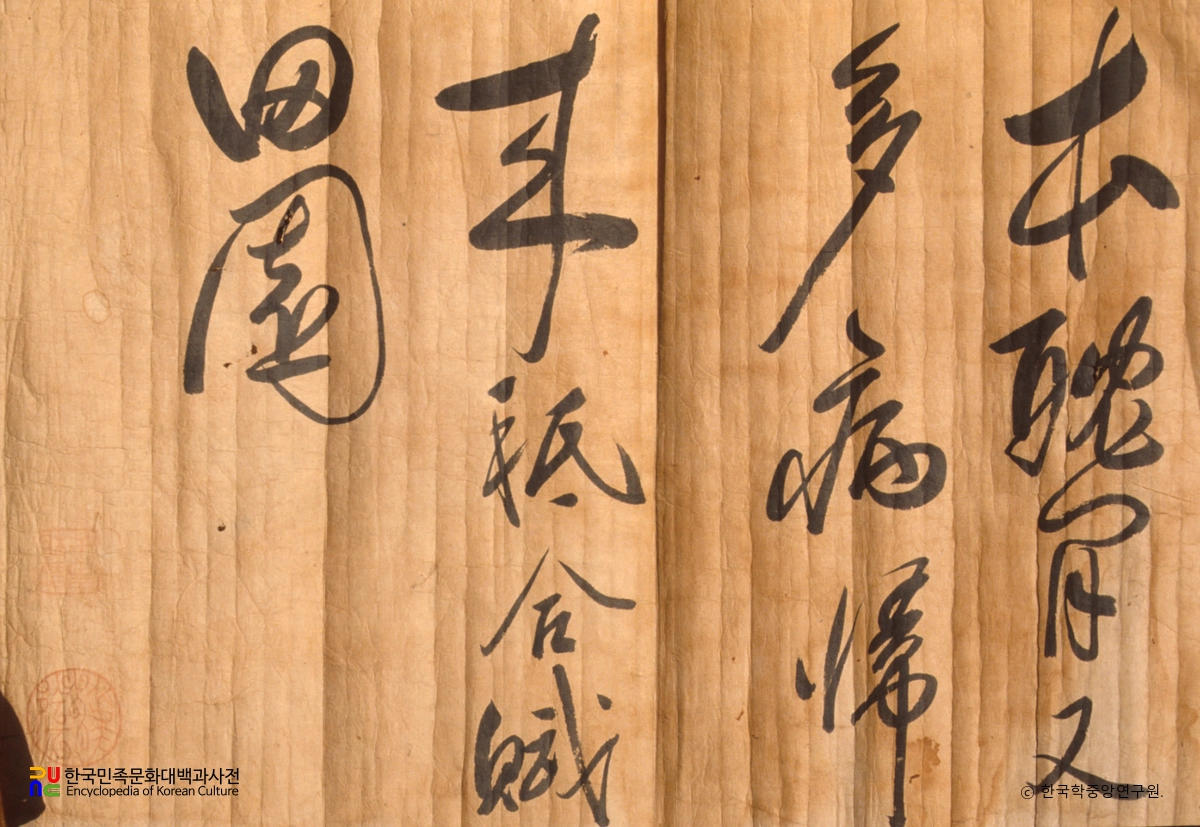 本又
多病歸
來秖合賦
田園
한국민족문화대백과사전
Encyclopedia of Korean Culture
ⓒ 한국학중앙연구원.